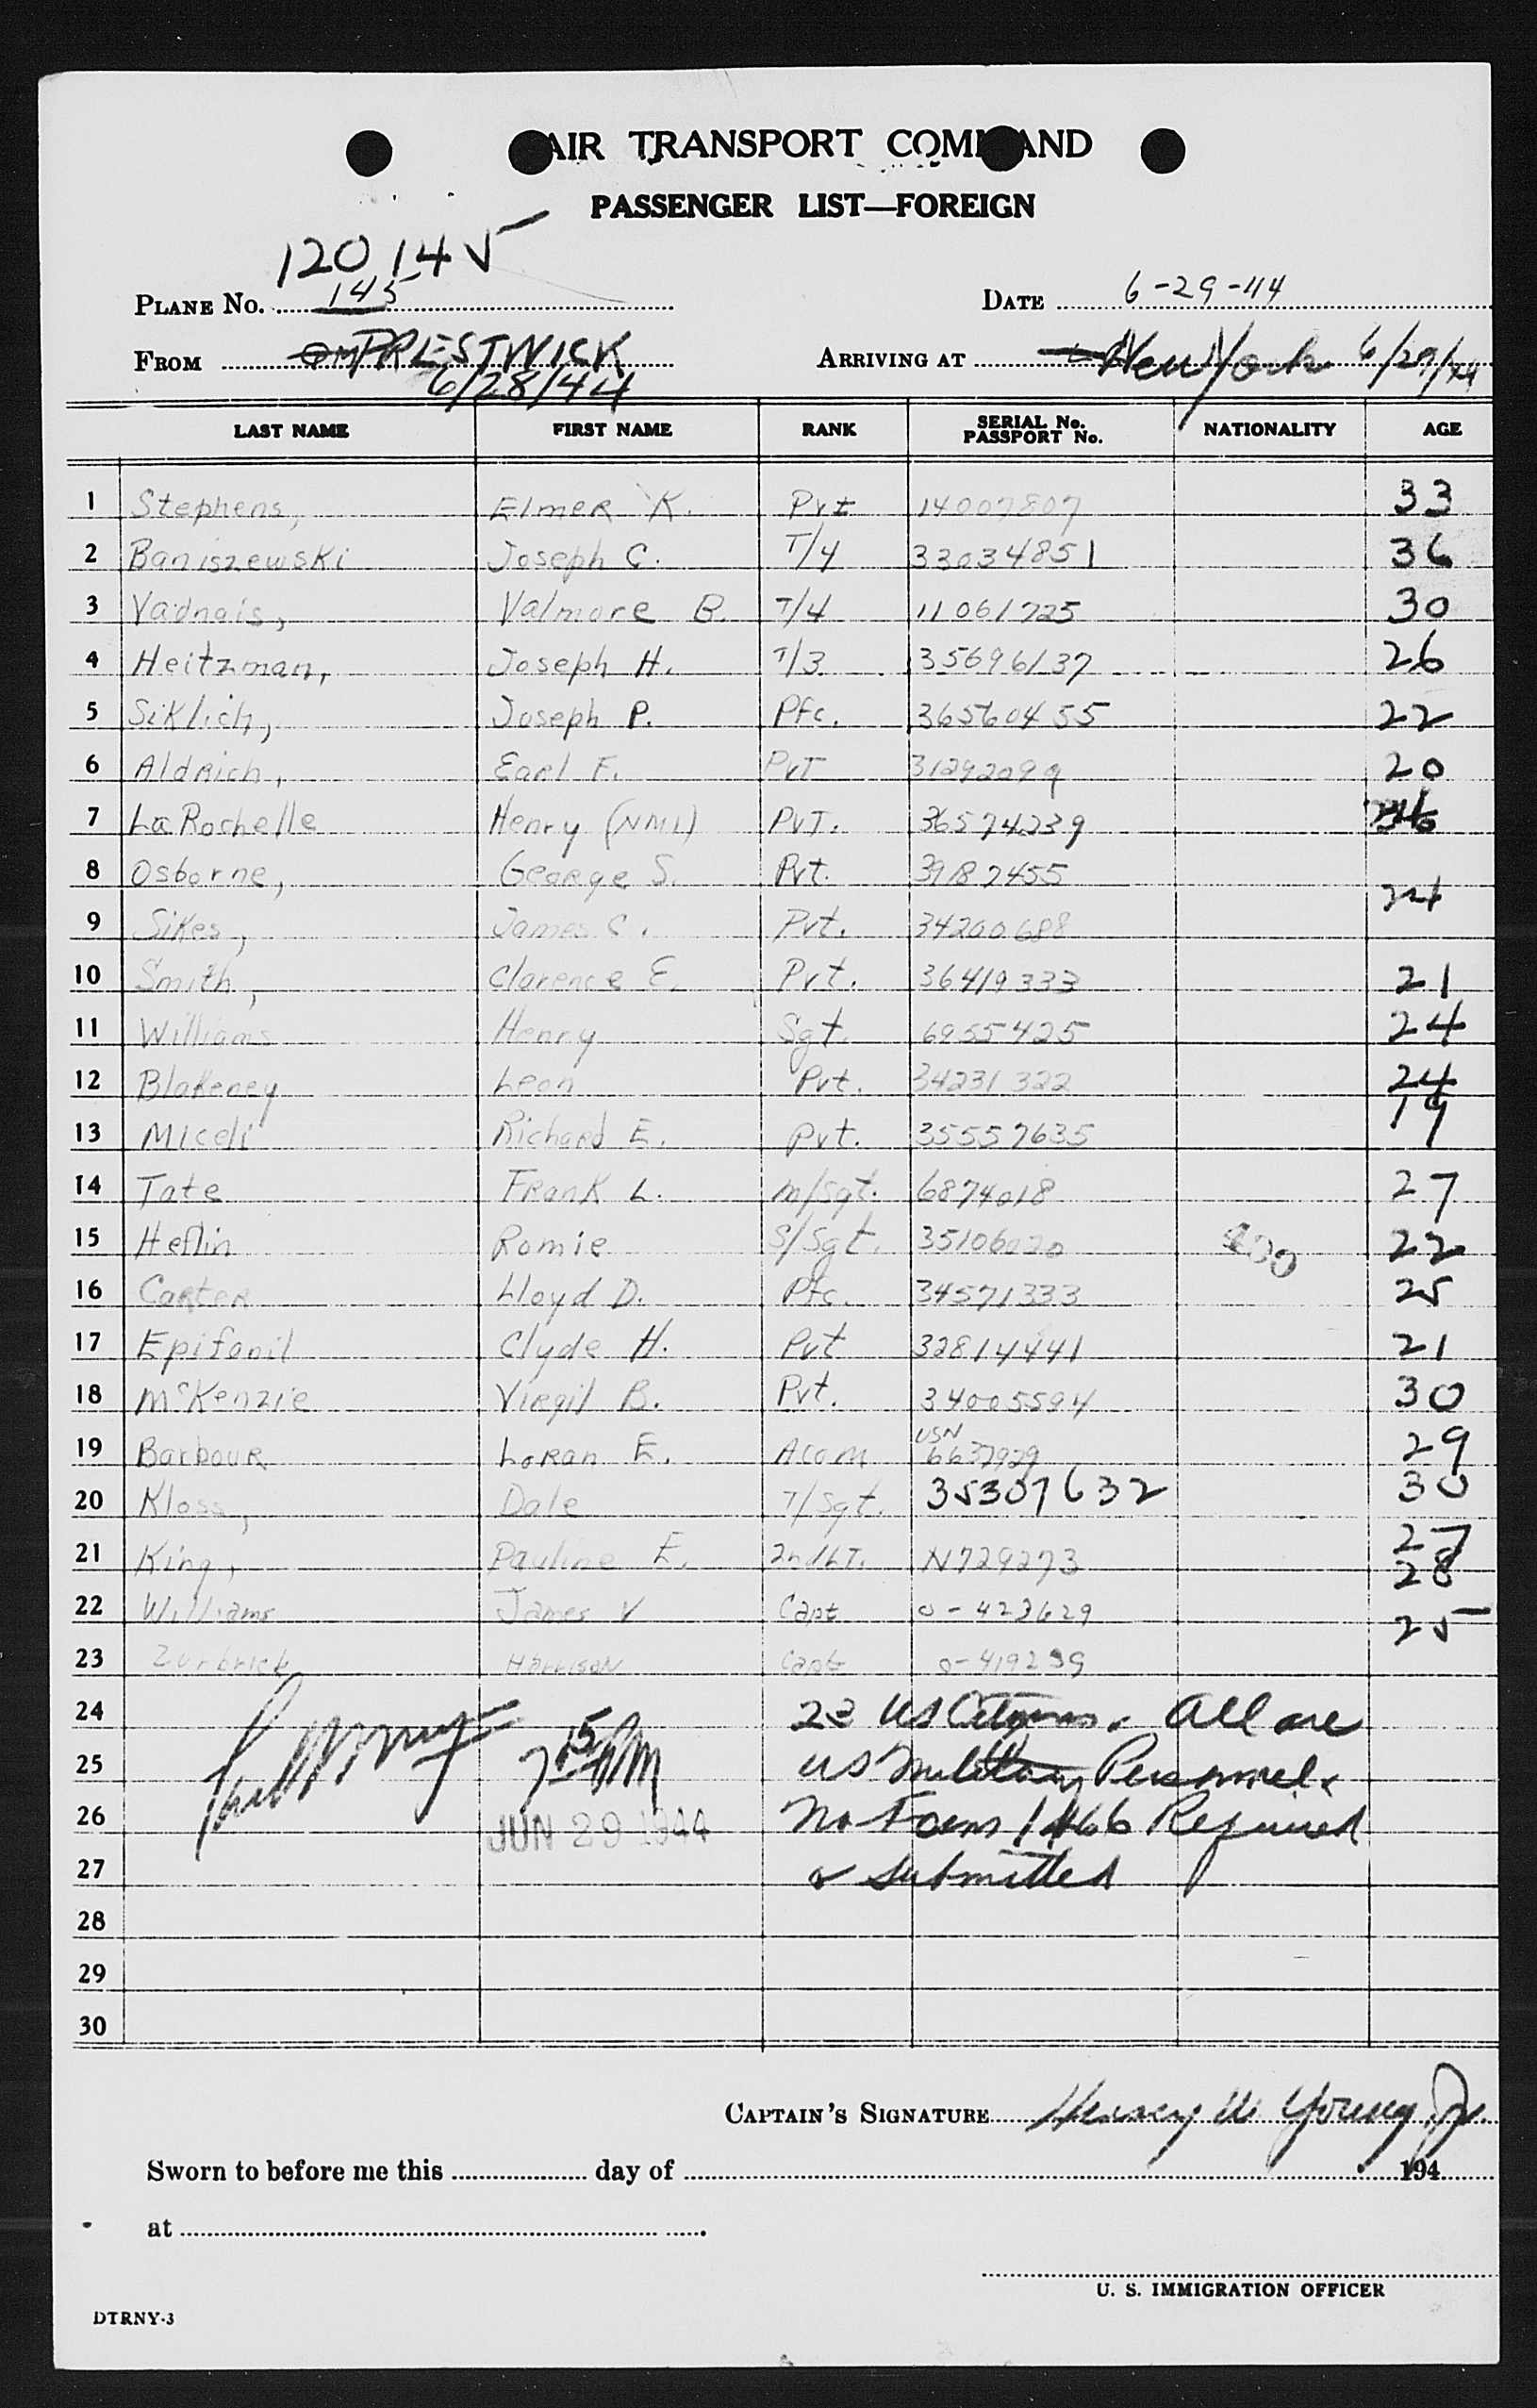 AIR TRANSPORT COMMAND
PASSENGER LIST—FOREIGN
120145
PLANE NO. 145 DATE 6-29-44
FROM PRESTWICK ARRIVING AT New York 6/29/44
6/28/44
LAST NAME FIRST NAME RANK SERIAL No. PASSPORT No. NATIONALITY AGE
1 Stephens, Elmer K. Pvt 14007807 33
2 Baniszewski Joseph C. T/4 33034851 36
3 Vadnais, Valmore B. T/4 11061725 30
4 Heitzman, Joseph H. T/3 35696137 26
5 Siklich, Joseph P. Pfc. 36560455 22
6 Aldrich, Earl F. Pvt 31292099 20
7 LaRochelle Henry (NMI) Pvt. 36574239
8 Osborne, George S. Pvt. 39187455
9 Sikes, James C. Pvt. 34200688 24
10 Smith, Clarence E. Pvt. 36419333 21
11 Williams Henry Sgt. 6955425 24
12 Blakeney Leon Pvt. 34231322 24
13 Miceli Richard E. Pvt. 35557635 19
14 Tate Frank L. M/Sgt. 6874018 27
15 Heflin Romie S/Sgt. 35106020 22
16 Carter Lloyd D. Pfc. 34571333 25
17 Epifanil Clyde H. Pvt 32814441 21
18 McKenzie Virgil B. Pvt. 34005594 30
19 Barbour Loran E. ACOM USN 6637929 29
20 Kloss, Dale T/Sgt. 35307632 30
21 King, Pauline E. 2nd LT. N729273 27
22 Williams James V Capt O-423629 28
23 Zurbrick Harrison Capt O-419239 25
24 23 US Citizens. All are
25 7 15 PM US Military Personnel.
26 JUN 29 1944 No Form 1466 Required
27 or submitted
28
29
30
CAPTAIN'S SIGNATURE Henry W. Young, Jr.
Sworn to before me this day of 194
at
U. S. IMMIGRATION OFFICER
DTRNY-3